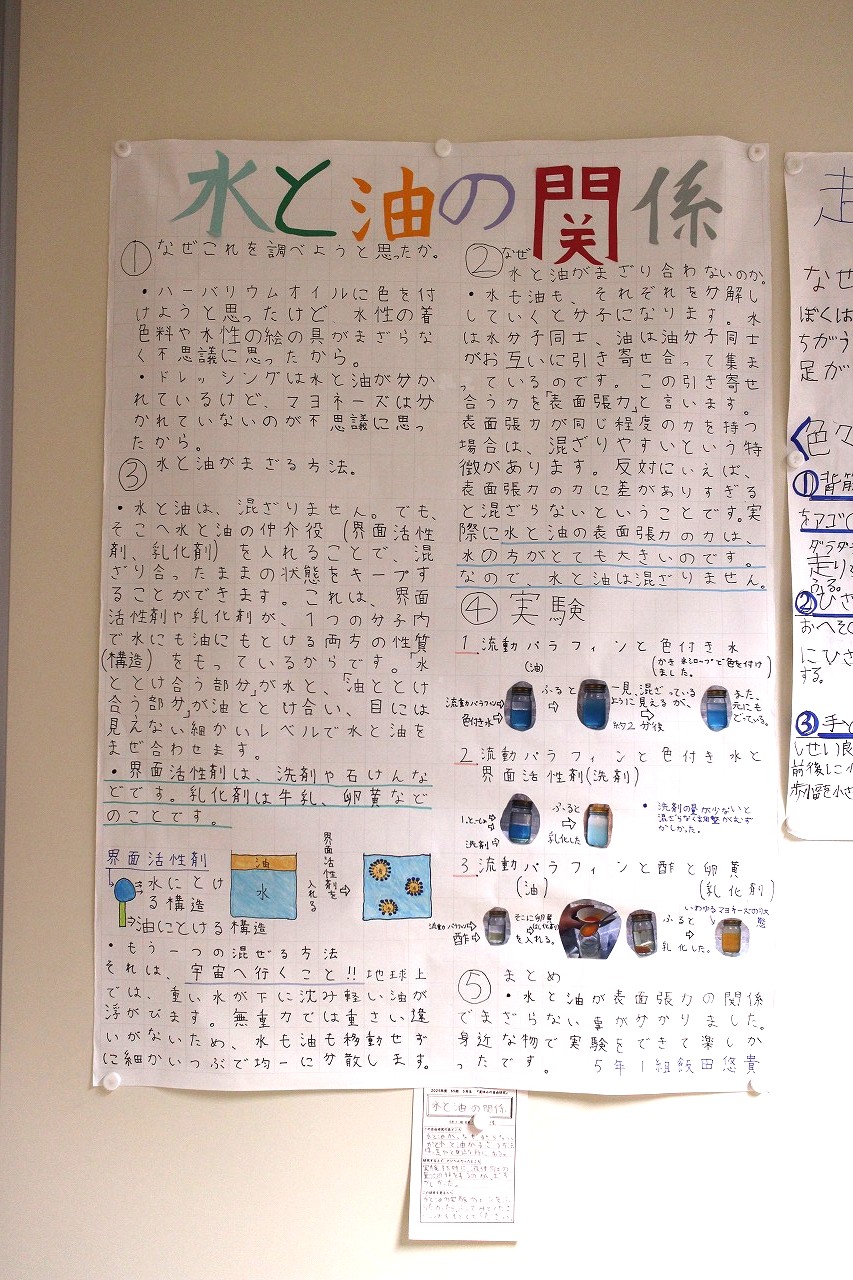 水と油の関係
①なぜこれを調べようと思ったか。
・ハーバリウムオイルに色を付
けようと思ったけど、水性の着
色料や水性の絵の具がまざらな
く不思議に思ったから。
・ドレッシングは水と油が分か
れているけど、マヨネーズは分
かれていないのが不思議に思っ
たから。
②なぜ
水と油がまざり合わないのか。
・水も油も、それぞれを分解し
していくと分子になります。水
は水分子同士、油は油分子同士
がお互いに引き寄せ合って集ま
っているのです。この引き寄せ
合う力を「表面張力」と言います。
表面張力が同じ程度の力を持つ
場合は、混ざりやすいという特
徴があります。反対にいえば、
表面張力の力に差がありすぎる
と混ざらないということです。実
際に水と油の表面張力の力は、
水の方がとても大きいのです。
なので、水と油は混ざりません。
③水と油がまざる方法。
・水と油は、混ざりません。でも、
そこへ水と油の仲介役(界面活性
剤、乳化剤)を入れることで、混
ざり合ったままの状態をキープす
ることができます。これは、界面
活性剤や乳化剤が、1つの分子内
で水にも油にもとける両方の性質
(構造)をもっているからです。「水
ととけ合う部分」が水と、「油ととけ
合う部分」が油ととけ合い、目には
見えない細かいレベルで水と油を
まぜ合わせます。
・界面活性剤は、洗剤や石けんな
どです。乳化剤は牛乳、卵黄など
のことです。
界面活性剤
水にとけ
る構造
油にとける構造
油
水
界面活性剤を
入れる
・もう一つの混ぜる方法
それは、宇宙へ行くこと!!地球上
では、重い水が下に沈み軽い油が
浮かびます。無重力では重さい違
いがないため、水も油も移動せず
に細かいつぶで均一に分散します。
④実験
1.流動パラフィンと色付き水
(油)
(かき氷シロップで色を付け
ました。)
流動パラフィン
色付き水
ふると
一見、混ざっている
ように見えるが、
約2分後
また、
元にも
どっている。
2.流動パラフィンと色付き水と
界面活性剤(洗剤)
1.といっしょ
洗剤
ふると
乳化した
・洗剤の量が少ないと
混ざらなく調整がむず
かしかった。
3.流動パラフィンと酢と卵黄
(油)
(乳化剤)
流動パラフィン
酢
そこに卵黄
(乳化剤)
を入れる。
ふると
乳化した。
いわゆるマヨネーズの状
態
⑤まとめ
・水と油が表面張力の関係
でまざらない事が分かりました。
身近な物で実験をできて楽しか
ったです。
5年1組飯田悠貴
水と油の関係
走
なぜ
ぼくは
ちがう
足が
色々
①背筋
をアゴ
走り
②ひざ
おへそ
にひさ
する。
③手と
しせい良
前後に